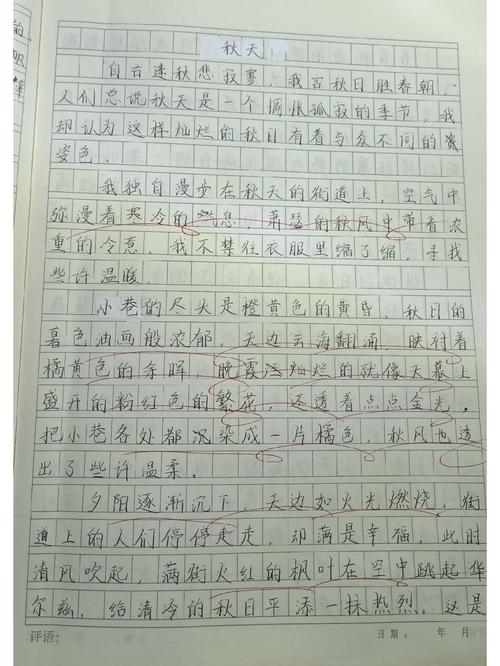 秋天
自古逢秋悲寂寥，我言秋日胜春朝，
人们总说秋天是一个惆怅孤寂的季节，我
却认为这样灿烂的秋日有着与众不同的资
姿色．
我独自漫步在秋天的街道上，空气中
弥漫着寒冷的气息，萧瑟的秋风中带着浓
重的冷意，我不禁往衣服里缩了缩，寻找
些许温暖．
小巷的尽头是橙黄色的黄昏，秋日的
暮色油画般浓郁，天边云海翻涌，映衬着
橘黄色的余晖，晚霞泛灿烂的就像天幕上
盛开的粉红色的繁花，还透着点点金光，
把小巷各处都沉染成一片橘色，秋风也透
出了些许温柔．
夕阳逐渐沉下，天边如火光燃烧，街
道上的人们停停走走，却满是幸福，此时
清风吹起，满街火红的枫叶在空中跳起华
尔兹，给清冷的秋日平添一抹热烈．这是
评语：
日期： 年 月
的